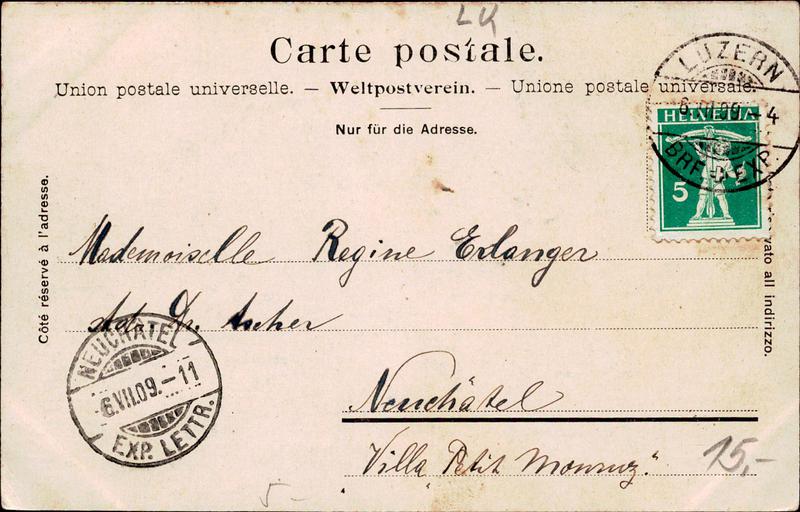 LK
Carte postale.
Union postale universelle. — Weltpostverein. — Unione postale universale.
Nur für die Adresse.
LUZERN
6.VII.09.–4
BRF. EXP.
HELVETIA
5
Côté réservé à l'adresse.
vato all indirizzo.
Mademoiselle Regine Erlanger
Dr. Ascher
NEUCHÂTEL
6.VII.09.–11
EXP. LETTR.
Neuchâtel
Villa „Petit Monruz."
15,-
5-